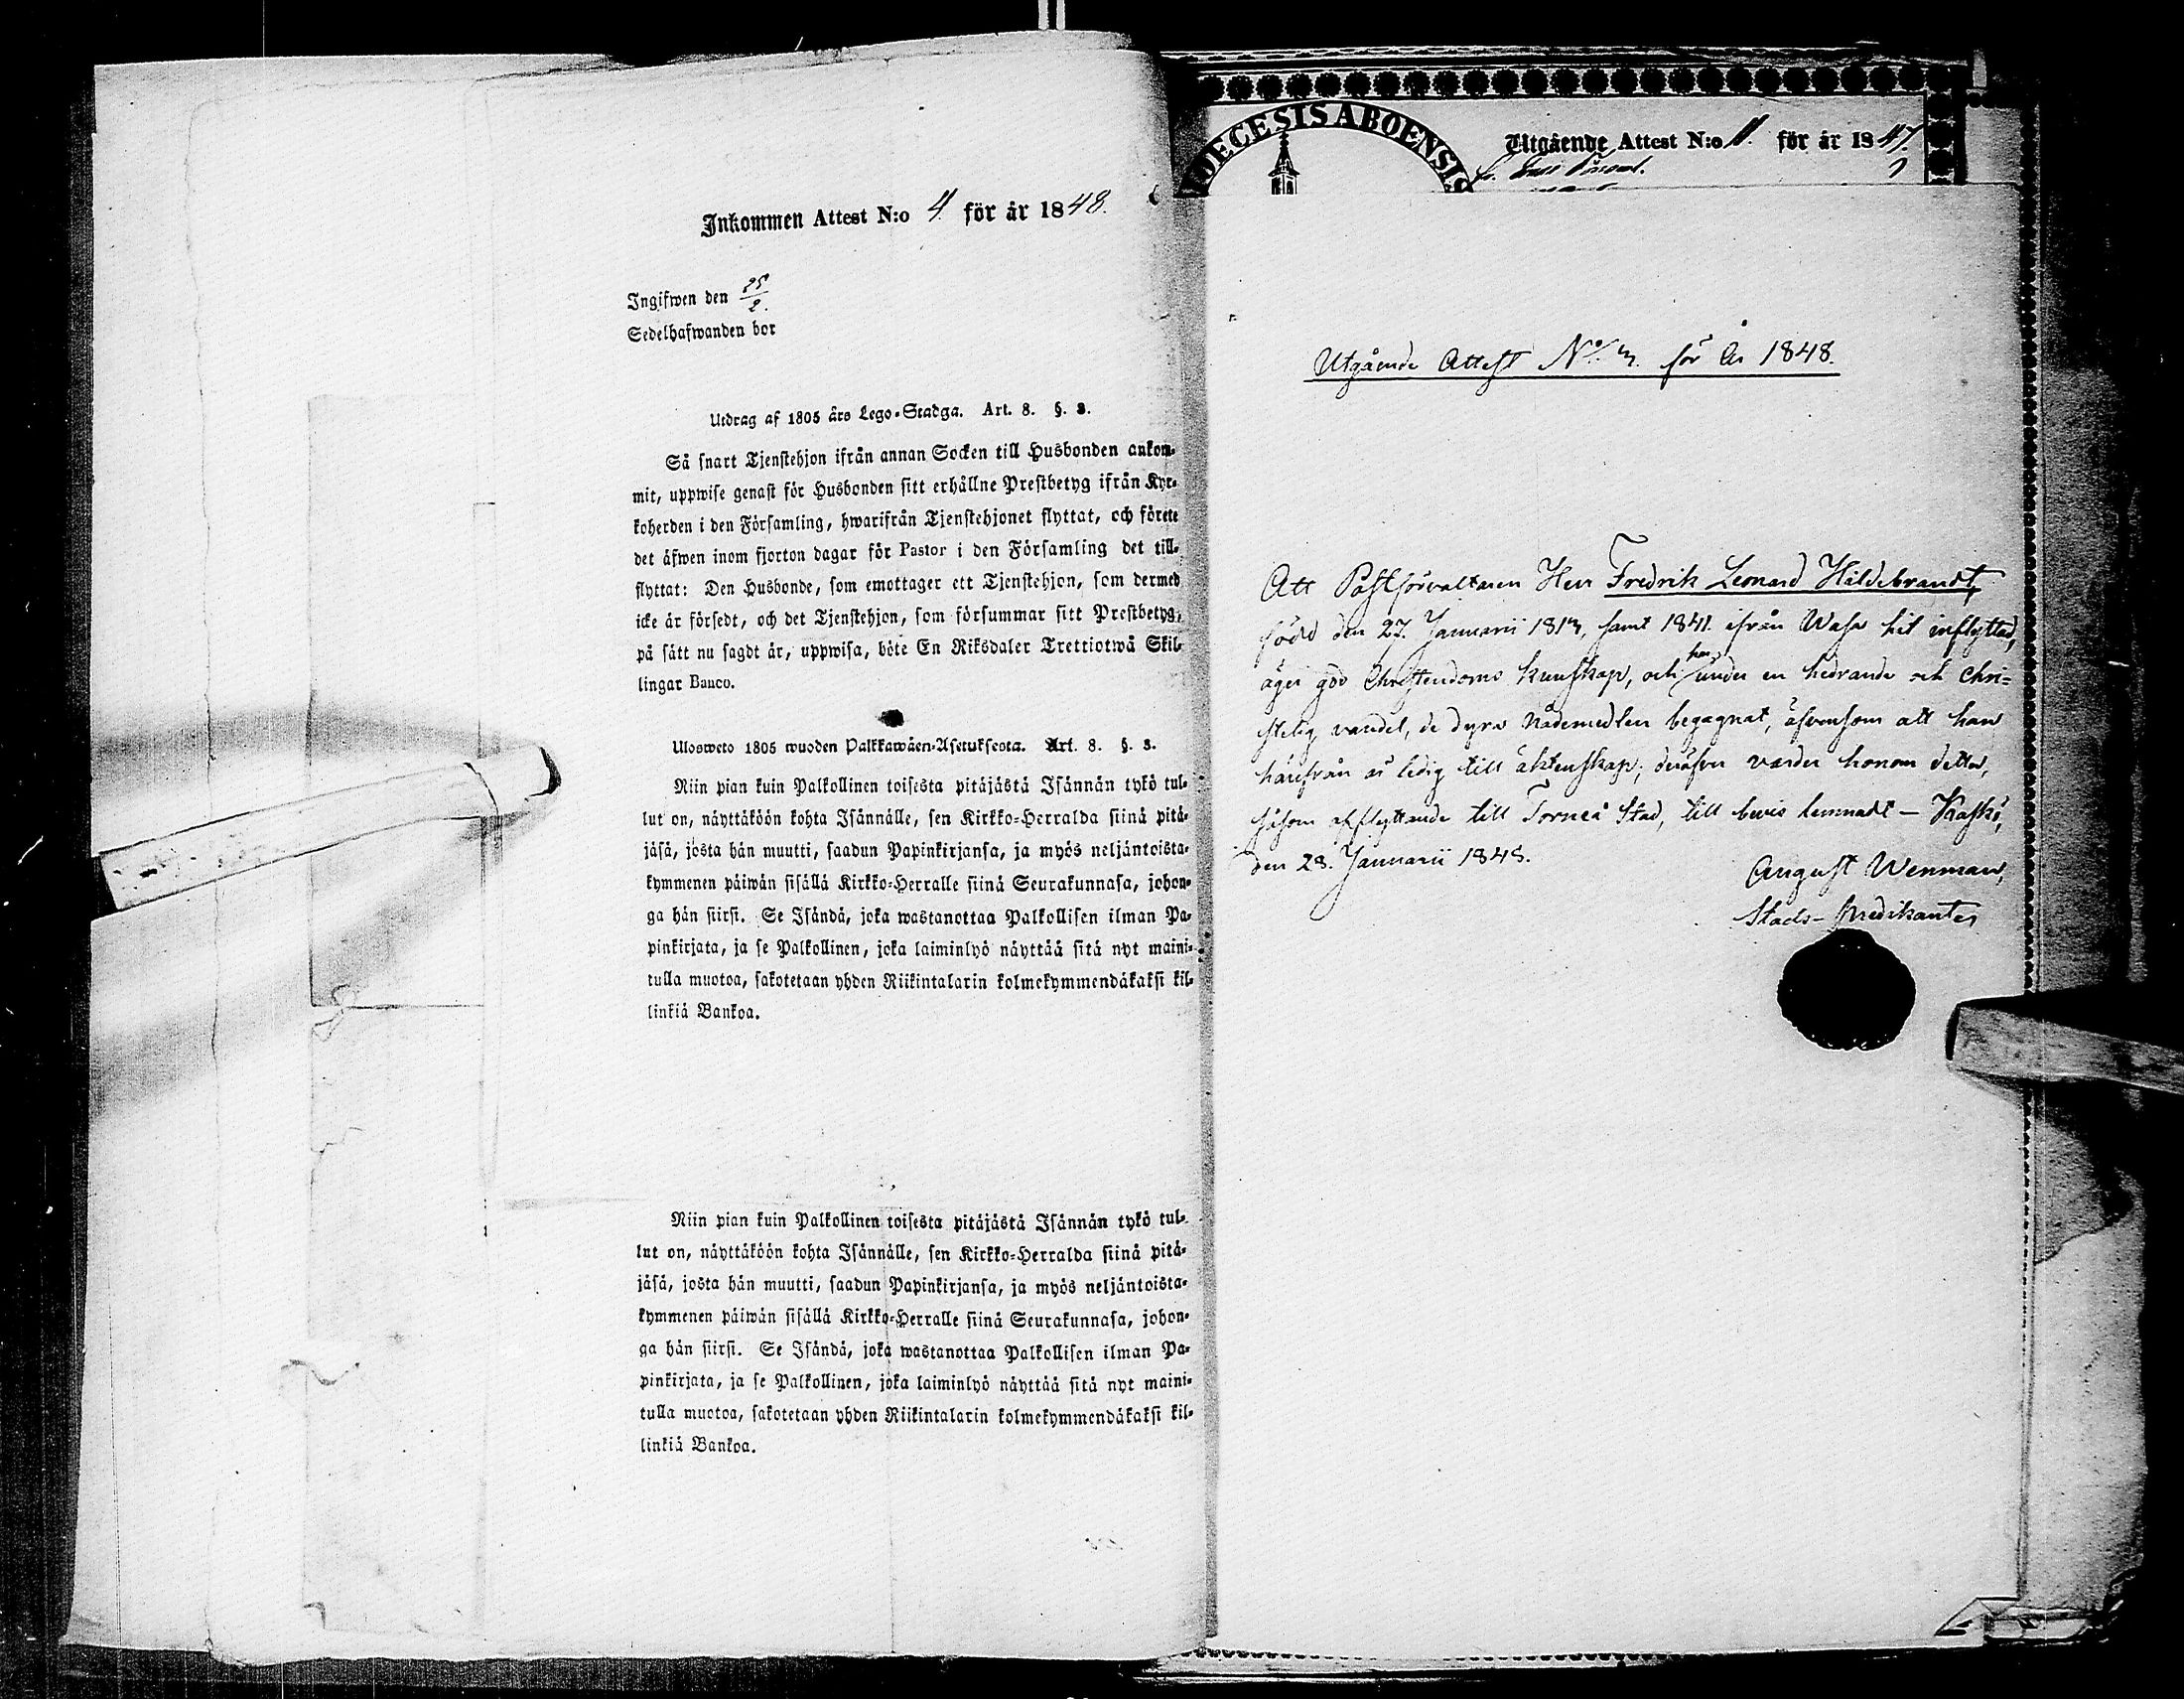 Inkommen Attest N:o 4. för år 1848.
Ingifwen den 25/2.
Sedelhafwanden bor
Utdrag af 1805 års Lego-Stadga. Art. 8. §. 3.
Så snart Tjenstehjon ifrån annan Socken till Husbonden ankom-
mit, uppwise genast för Husbonden sitt erhållne Prestbetyg ifrån Kyr-
koherden i den Församling, hwarifrån Tjenstehjonet flyttat, och förete
det äfwen inom fjorton dagar för Pastor i den Församling det till-
flyttat: Den Husbonde, som emottager ett Tjenstehjon, som dermed
icke är försedt, och det Tjenstehjon, som försummar sitt Prestbetyg,
på sätt nu sagdt är, uppwisa, böte En Riksdaler Trettiotwå Skil-
lingar Banco.
Ulosweto 1805 wuoden Palkkawäen-Asetuksesta. Art. 8. §. 3.
Niin pian kuin Palkollinen toisesta pitäjästä Isännän tykö tul-
lut on, näyttäköön kohta Isännälle, sen Kirkko-Herralda siinä pitä-
jäsä, josta hän muutti, saadun Papinkirjansa, ja myös neljäntoista-
kymmenen päiwän sisällä Kirkko-Herralle siinä Seurakunnasa, johon-
ga hän siirsi. Se Isändä, joka wastanottaa Palkollisen ilman Pa-
pinkirjata, ja se Palkollinen, joka laiminlyö näyttää sitä nyt maini-
tulla muotoa, sakotetaan yhden Riikintalarin kolmekymmendäkaksi kil-
linkiä Bankoa.
Niin pian kuin Palkollinen toisesta pitäjästä Isännän tykö tul-
lut on, näyttäköön kohta Isännälle, sen Kirkko-Herralda siinä pitä-
jäsä, josta hän muutti, saadun Papinkirjansa, ja myös neljäntoista-
kymmenen päiwän sisällä Kirkko-Herralle siinä Seurakunnasa, johon-
ga hän siirsi. Se Isändä, joka wastanottaa Palkollisen ilman Pa-
pinkirjata, ja se Palkollinen, joka laiminlyö näyttää sitä nyt maini-
tulla muotoa, sakotetaan yhden Riikintalarin kolmekymmendäkaksi kil-
linkiä Bankoa.
DIOECESIS ABOENSIS
Utgående Attest N:o för år 1847.
Utgående Attest No. 3. för År 1848.
Att Postförvaltaren Herr Fredrik Leonard Hildebrandt,
född den 27. Januarii 1813, samt 1841. ifrån Wasa hit inflyttad,
äger god Christendoms kunskap, och har under en hedrande och chri-
stelig vandel, de dyra nådemedlen begagnat, äfvensom att han
härifrån är ledig till äktenskap; deröfver varder honom detta,
såsom afflyttande till Torneå Stad, till bevis lemnadt — Kaskö,
den 28. Januarii 1848.
August Wenman,
Stads-Predikanter